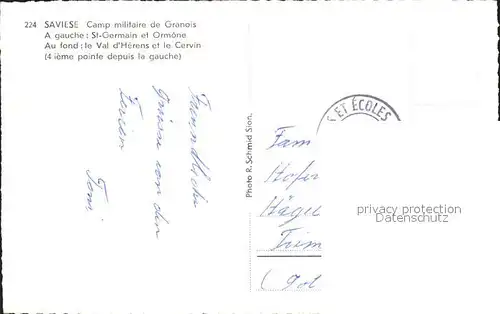 224 SAVIESE Camp militaire de Granois
A gauche : St-Germain et Ormône
Au fond : le Val d'Hérens et le Cervin
(4 ième pointe depuis la gauche)
Freundliche
Grüsse von den
Ferien
Toni
Photo R. Schmid Sion.
ET ÉCOLES
Fam
Hofer
Hägli
Trim
privacy protection
Datenschutz